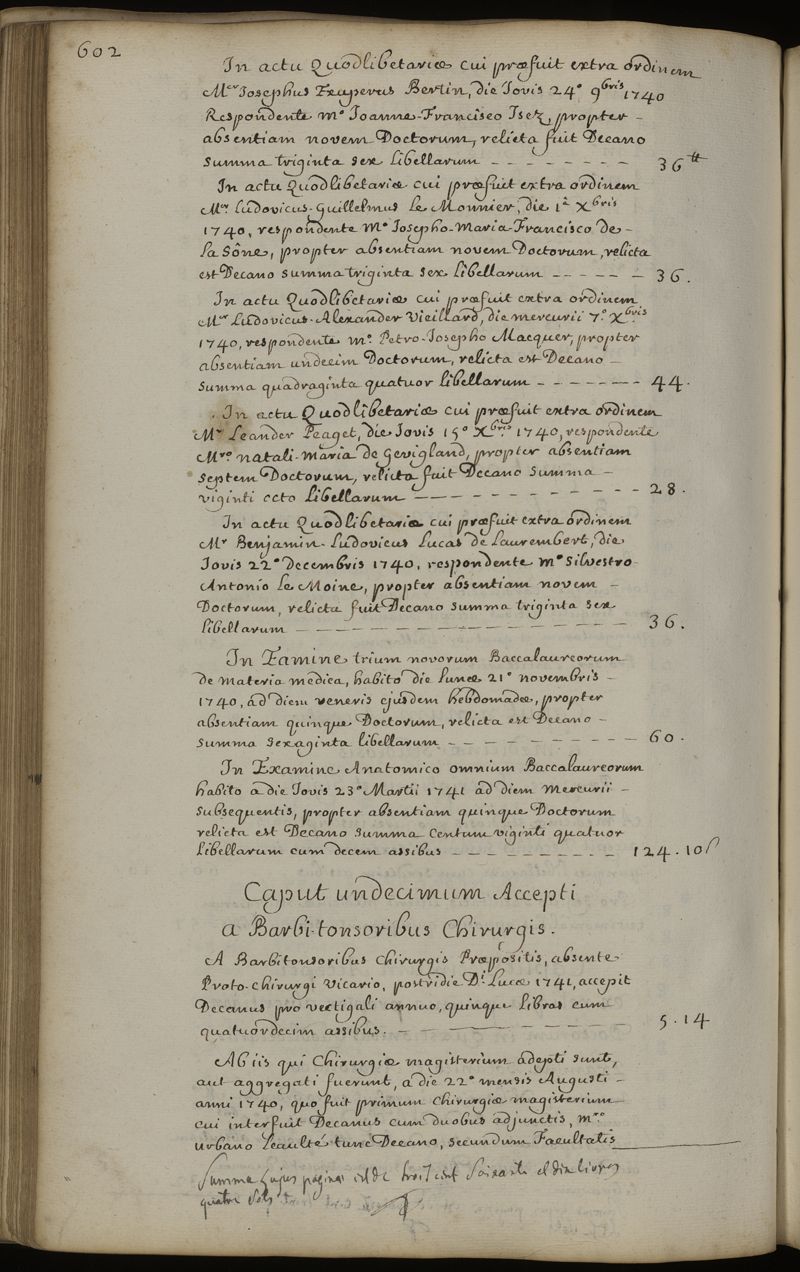 602
In actu Quodlibetariæ cui præfuit extra ordinem
Mer Josephus Exuperus Bertin, die Jovis 24° 9bris 1740
Respondente m° Joanne-Francisco Isez, propter -
absentiam novem Doctorum, relicta fuit Decano
summa triginta sex libellarum - - - - - - - - 36tt
In actu Quodlibetariæ cui præfuit extra ordinem
Mer Ludovicus-Guillelmus Le Monnier, die 1a Xbris
1740, respondente M° Josepho-Maria-Francisco de -
La Sône, propter absentiam novem Doctorum, relicta
est Decano summa triginta sex libellarum - - - - - - 36.
In actu Quodlibetariæ cui præfuit extra ordinem
Mer Ludovicus-Alexander Vieillard, die mercurii 7° Xbris
1740, respondente m° Petro-Josepho Macquer, propter
absentiam undecim Doctorum, relicta est Decano -
summa quadraginta quatuor libellarum - - - - - - - 44.
In actu Quodlibetariæ cui præfuit extra ordinem
Mer Leander Peaget, die Jovis 15° Xbris 1740, respondente
Mro natali-maria de Gevigland, propter absentiam
septem Doctorum, relicta fuit Decano summa -
viginti octo libellarum - - - - - - - - - - - 28.
In actu Quodlibetariæ cui præfuit extra ordinem
Mr Benjamin-Ludovicus Lucas de Laurembert, die
Jovis 22° Decembris 1740, respondente m° Silvestro-
Antonio Le Moine, propter absentiam novem -
Doctorum, relicta fuit Decano summa triginta sex
libellarum - - - - - - - - - - - - - - - 36.
In Examine trium novorum Baccalaureorum
de materia medica, habito die lunæ 21° novembris -
1740, ad diem veneris ejusdem hebdomadæ, propter
absentiam quinque Doctorum, relicta est Decano -
summa sexaginta libellarum - - - - - - - - - - 60.
In Examine Anatomico omnium Baccalaureorum
habito a die Jovis 23° Martii 1741 ad diem mercurii -
subsequentis, propter absentiam quinque Doctorum
relicta est Decano summa centum viginti quatuor
libellarum cum decem assibus - - - - - - - - - 124.10s
Caput undecimum Accepti
a Barbi-tonsoribus Chirurgis.
A Barbitonsoribus Chirurgis Præpositis, absente
Proto-chirurgi vicario, postridie Di Lucæ 1741, accepit
Decanus pro vectigali annuo, quinque libras cum
quatuordecim assibus. - - - - - - - - - 5.14
Ab iis qui Chirurgiæ magisterium adepti sunt,
aut aggregati fuerunt, a die 22° mensis Augusti -
anni 1740, quo fuit primum chirurgiæ magisterium
cui interfuit Decanus cum duobus adjunctis, mro
urbano Leaulté tunc Decano, secundum Facultatis
Summa hujus paginæ est de trois cent soixante et dix livres
quatre sols